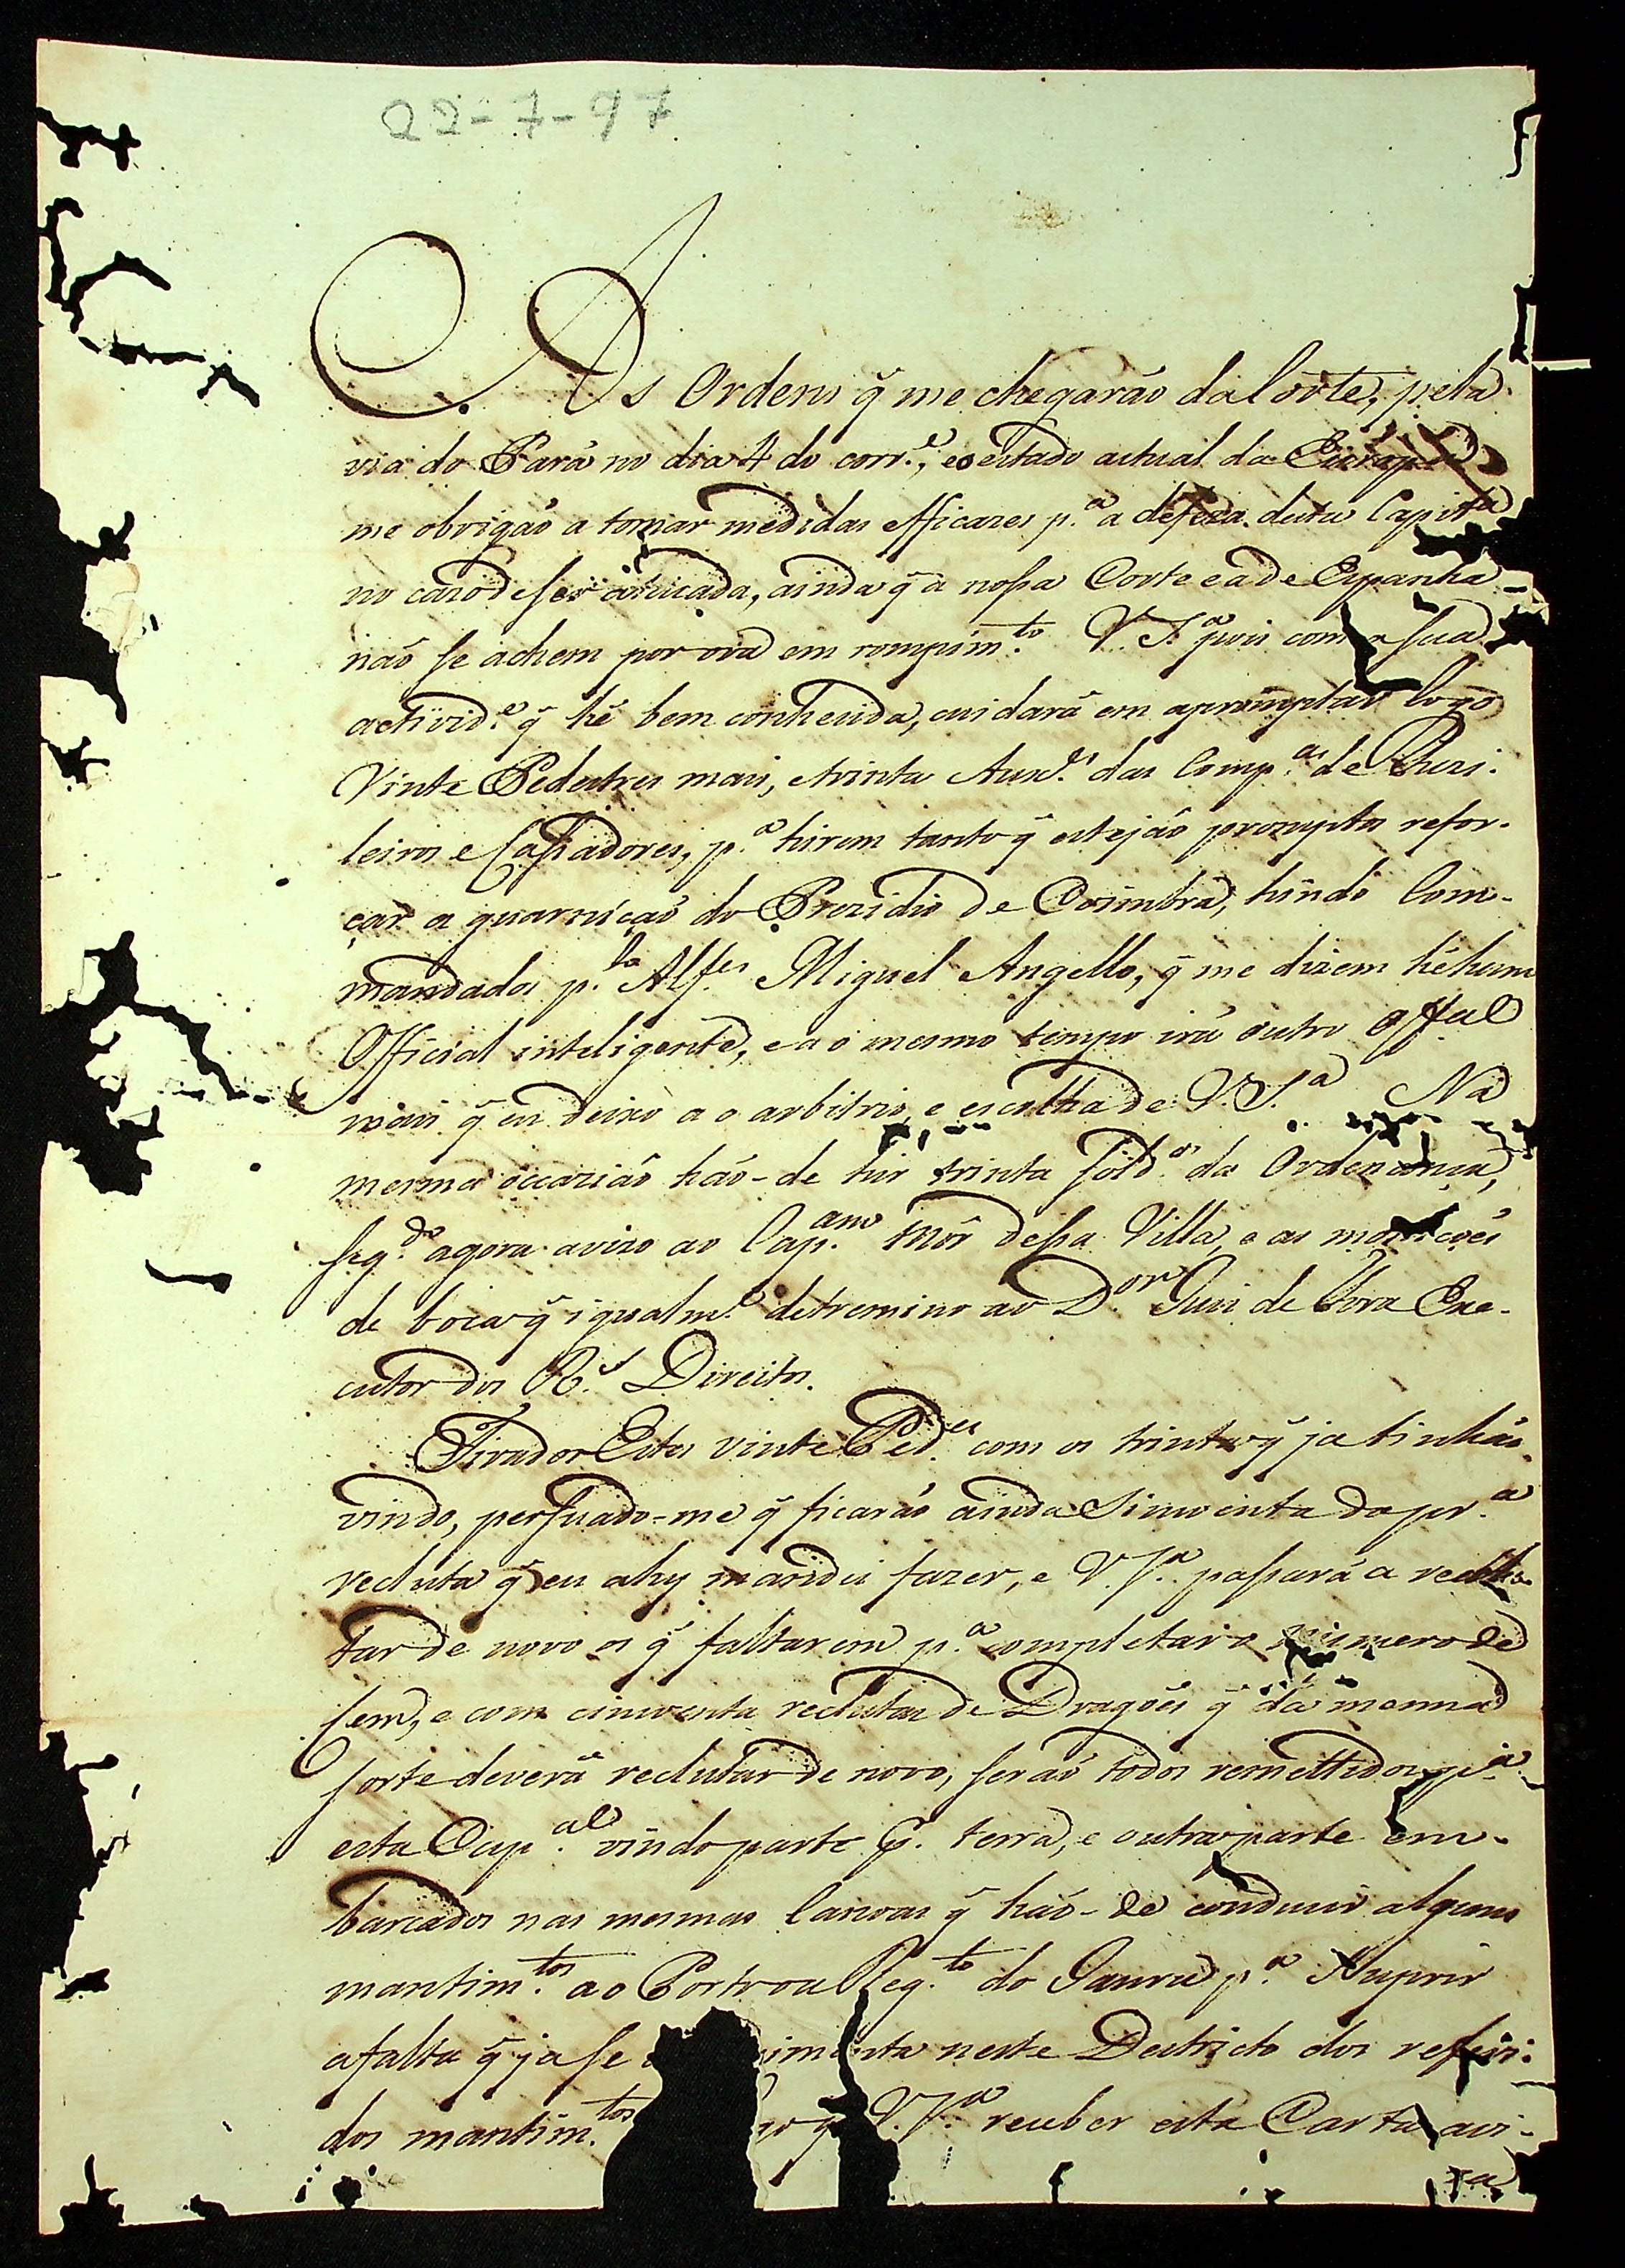 22-7-97
As Ordens q̃ me chegaráo da Corte, pela
via do Pará no dia 4 do corr.e, eo estado actual da Europa
me obrigáo a tomar medidas efficazes p.a a defeza desta Capit.a
no cazo de ser atacada, ainda q̃ a nossa Corte e a de Espanha
náo se achem por ora em rompim.to V. S.a pois com a sua
activid.e q̃ hé bem conhecida, cuidará em apromptar logo
Vinte Pedestres mais, e trinta Aux.es das Comp.as de Fuzi-
leiros e Cassadores, p.a hirem tanto q̃ estejáo promptos refor-
çar a guarniçáo do Prezidio de Coimbra, hindo Com-
mandados p.lo Alf.es Miguel Angello, q̃ me dizem hé hum
Official inteligente, e ao mesmo tempo irá outro Off.al
mais q̃ eu deixo ao arbitrio, e escolha de V. S.a Na
mesma occaziáo háo-de hir trinta Sold.os da Ordenança,
seg.do agora avizo ao Cap.am Mór dessa Villa, e as moniçoẽs
de boca q̃ igualm.e detremino ao D.or Juiz de Fora Exe-
cutor dos R.s Direitos.
Tirados Estes vinte Ped.es com os trinta q̃ ja tinháo
vindo, persuado-me q̃ ficaráo ainda Sincoenta da pr.a
recluta q̃ eu ahy mandei fazer, e V. S.a passará a reclu-
tar de novo os q̃ faltarem p.a completar o numero de
sem, e com cincoenta reclutas de Dragoẽs q̃ da mesma
sorte deverá reclutar de novo, seráo todos remettidos p.a
esta Cap.al vindo parte p. terra, e outra parte em-
barcados nas mesmas Canoas q̃ háo-de conduzir alguns
mantim.tos ao Porto ou Reg.to do Jauru p.a Suprir
a falta q̃ ja se imenta neste Destricto dos referi-
dos mantim.tos q̃ V. S.a receber esta Carta avi-
za